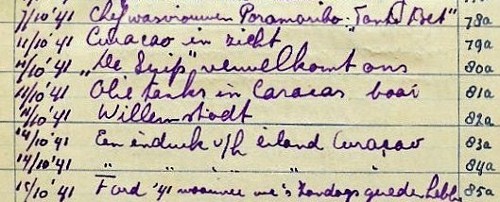 7/10 '41 Chef wasvrouwen Paramaribo: "Tante Bet" 78a
11/10 '41 Curacao in zicht 79a
11/10 '41 "De Sијp" verwelkomt ons 80a
11/10 '41 Olie tanks in Caracas baai 81a
11/10 '41 Willemstadt 82a
14/10 '41 Een indruk v/h eiland Curaçao 83a
14/10 '41 " " " " 84a
15/10 '41 Ford '41 waarmee we 's Zondags gereden hebben 85a